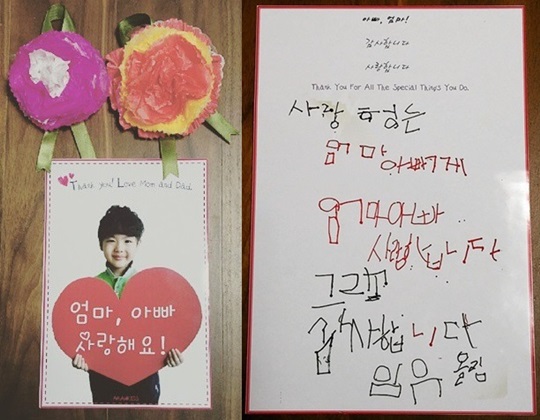 Thank you! Love Mom and Dad.
엄마, 아빠
사랑해요!
아빠, 엄마!
감사합니다
사랑합니다
Thank You For All The Special Things You Do.
사랑 하는
엄마아빠게
엄마아빠
사랑합니다
감사합니다
올림